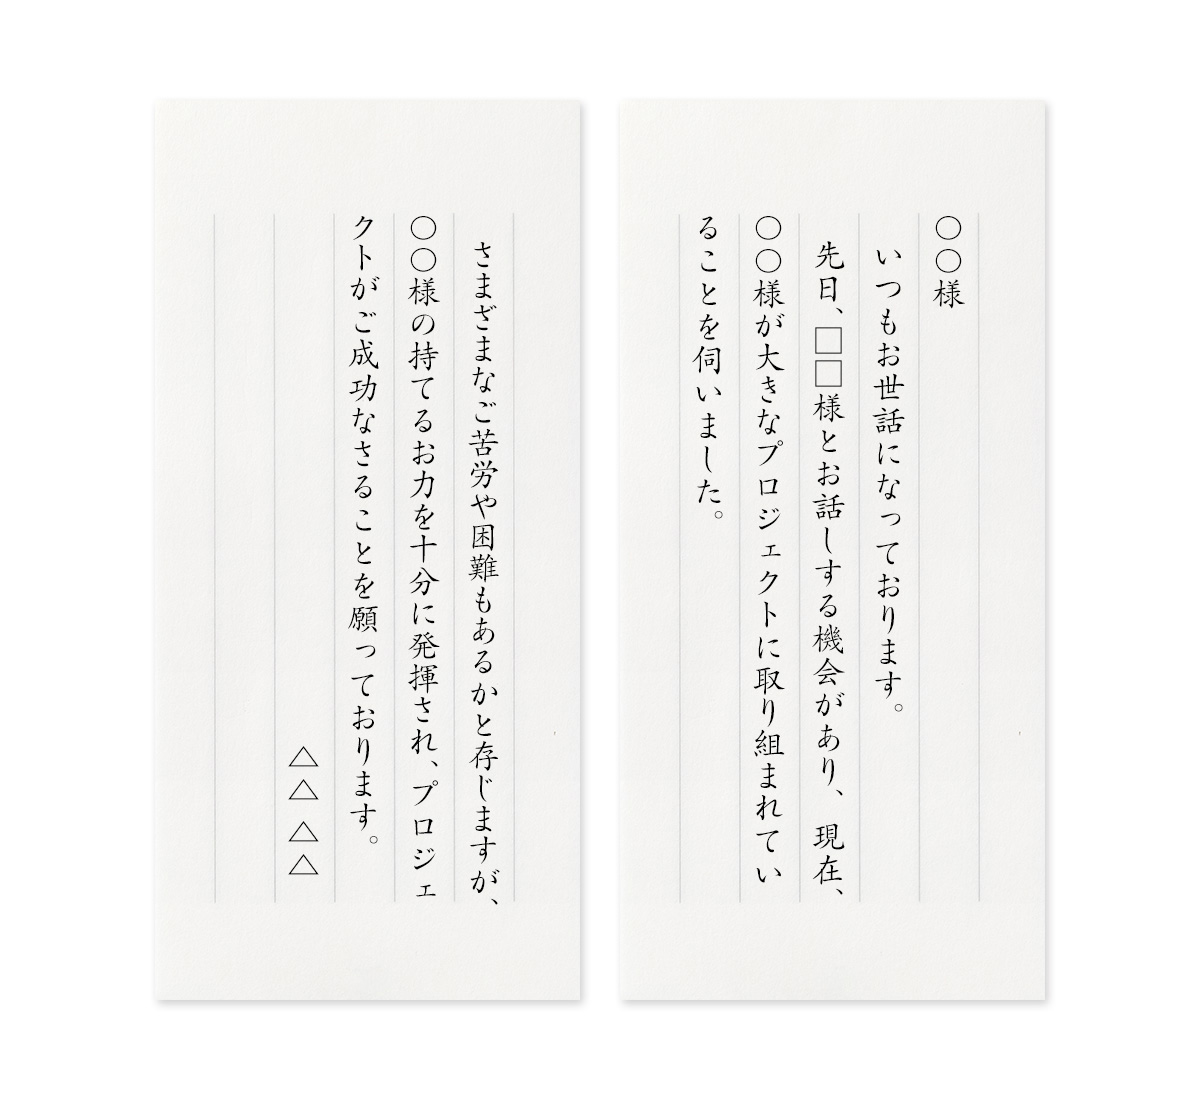 ○○様
いつもお世話になっております。
先日、□□様とお話しする機会があり、現在、
○○様が大きなプロジェクトに取り組まれてい
ることを伺いました。
さまざまなご苦労や困難もあるかと存じますが、
○○様の持てるお力を十分に発揮され、プロジェ
クトがご成功なさることを願っております。
△△ △△